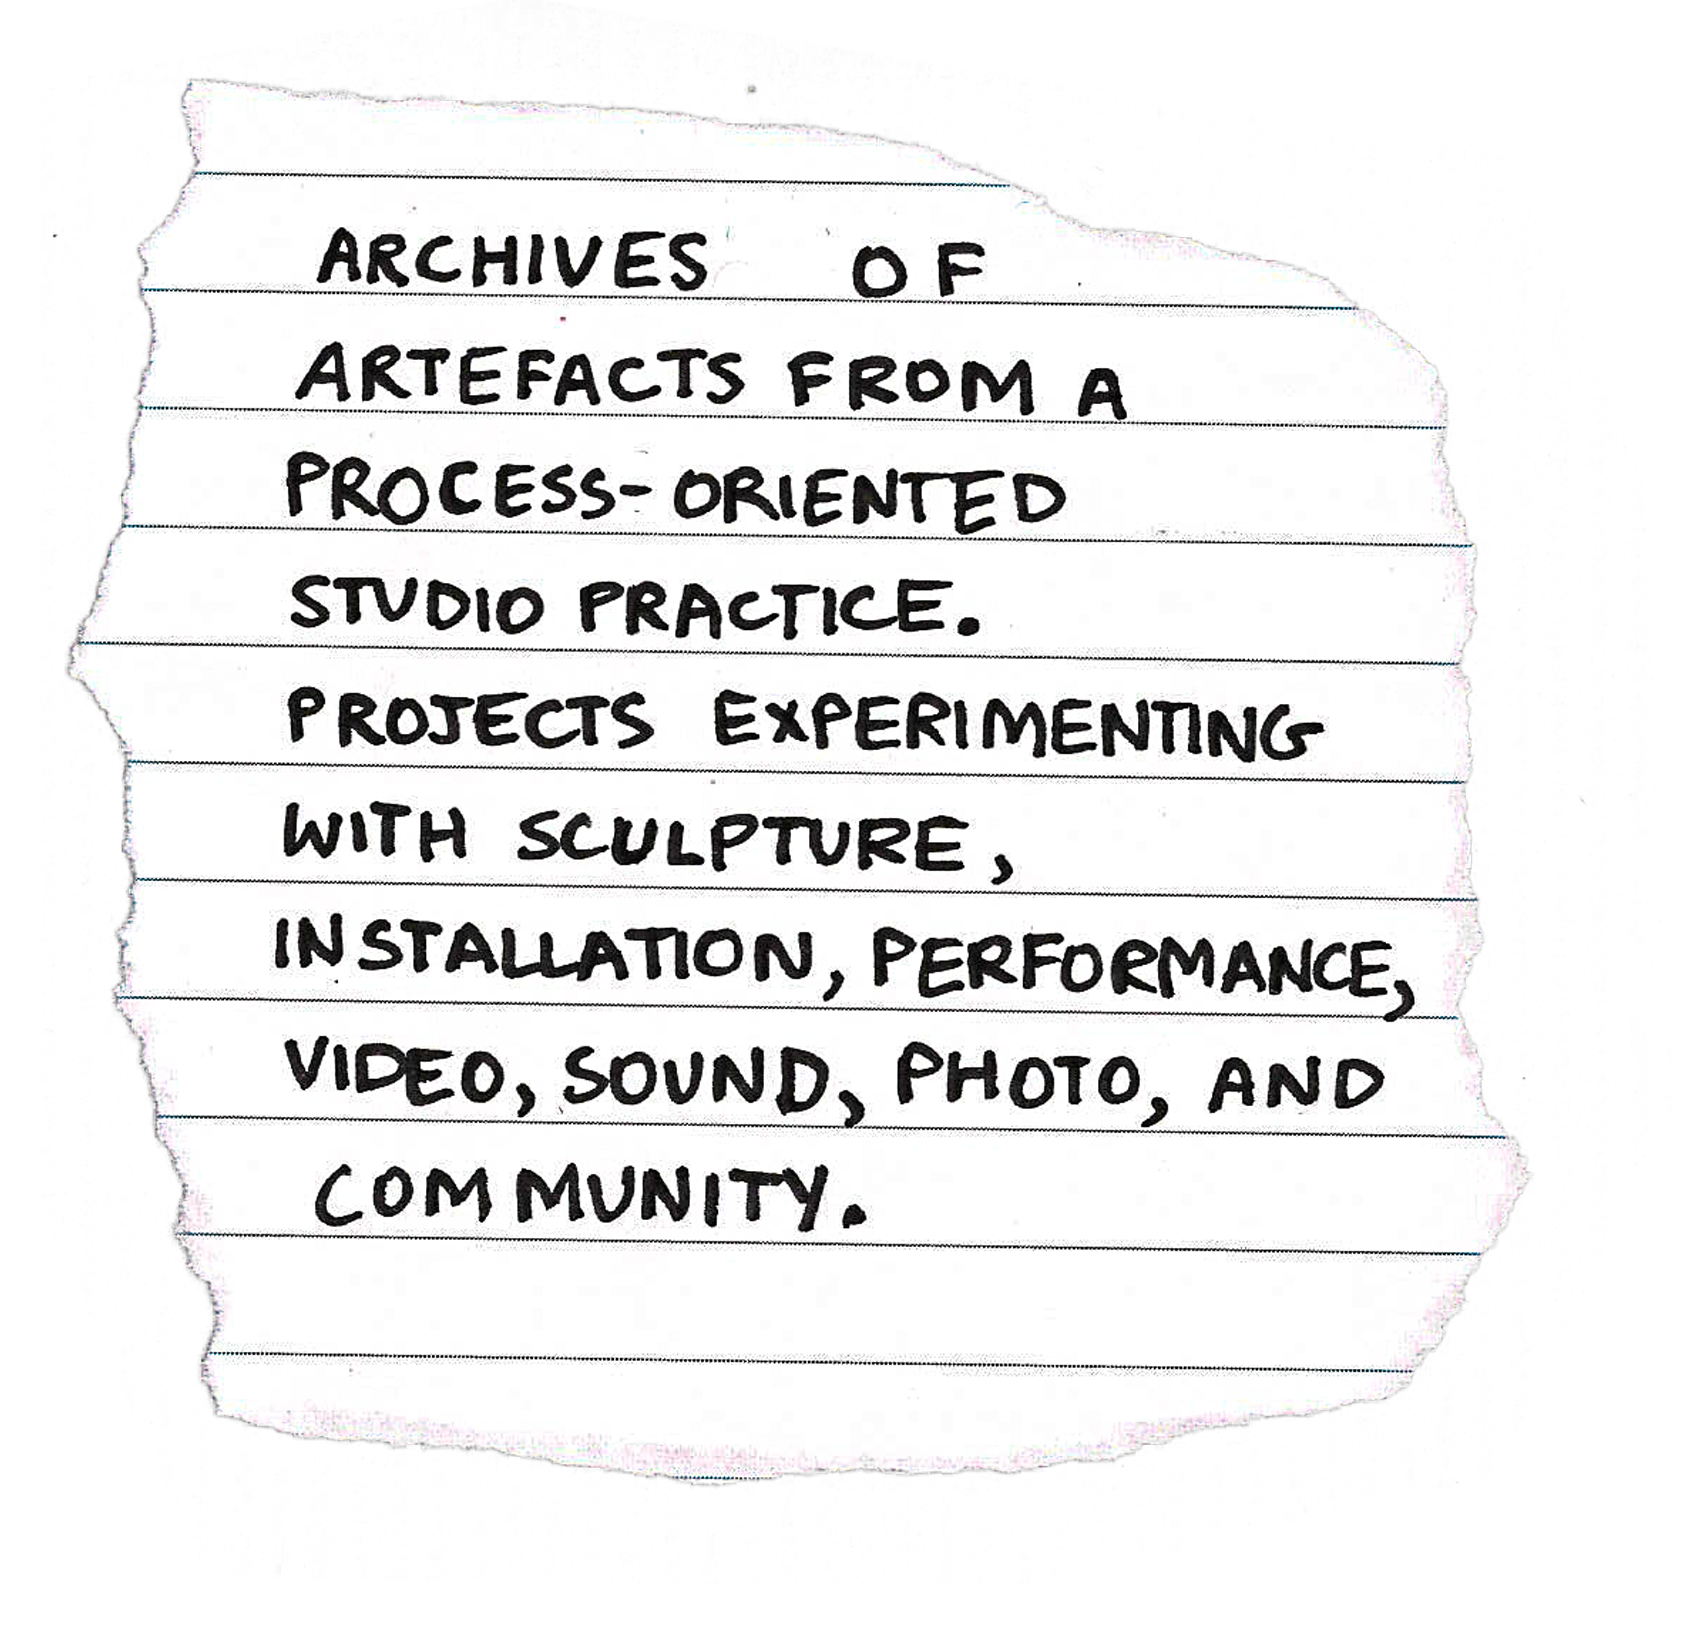 ARCHIVES OF
ARTEFACTS FROM A
PROCESS-ORIENTED
STUDIO PRACTICE.
PROJECTS EXPERIMENTING
WITH SCULPTURE,
INSTALLATION, PERFORMANCE,
VIDEO, SOUND, PHOTO, AND
COMMUNITY.